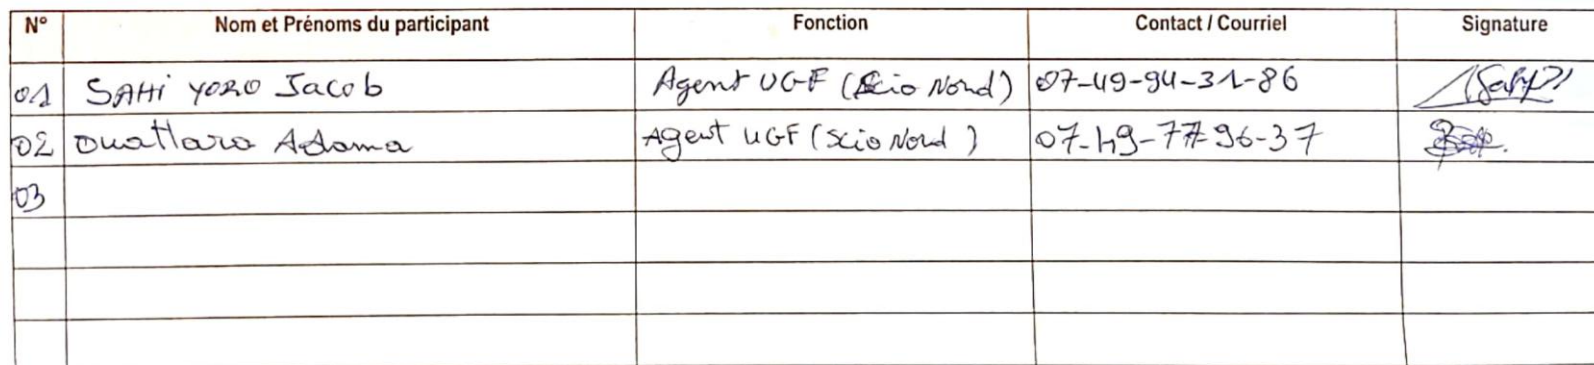 N° Nom et Prénoms du participant Fonction Contact / Courriel Signature
01 SAHi YORO Jacob Agent UGF (Scio Nord) 07-49-94-31-86
02 Ouattara Adama Agent UGF (Scio Nord) 07-49-77-96-37
03